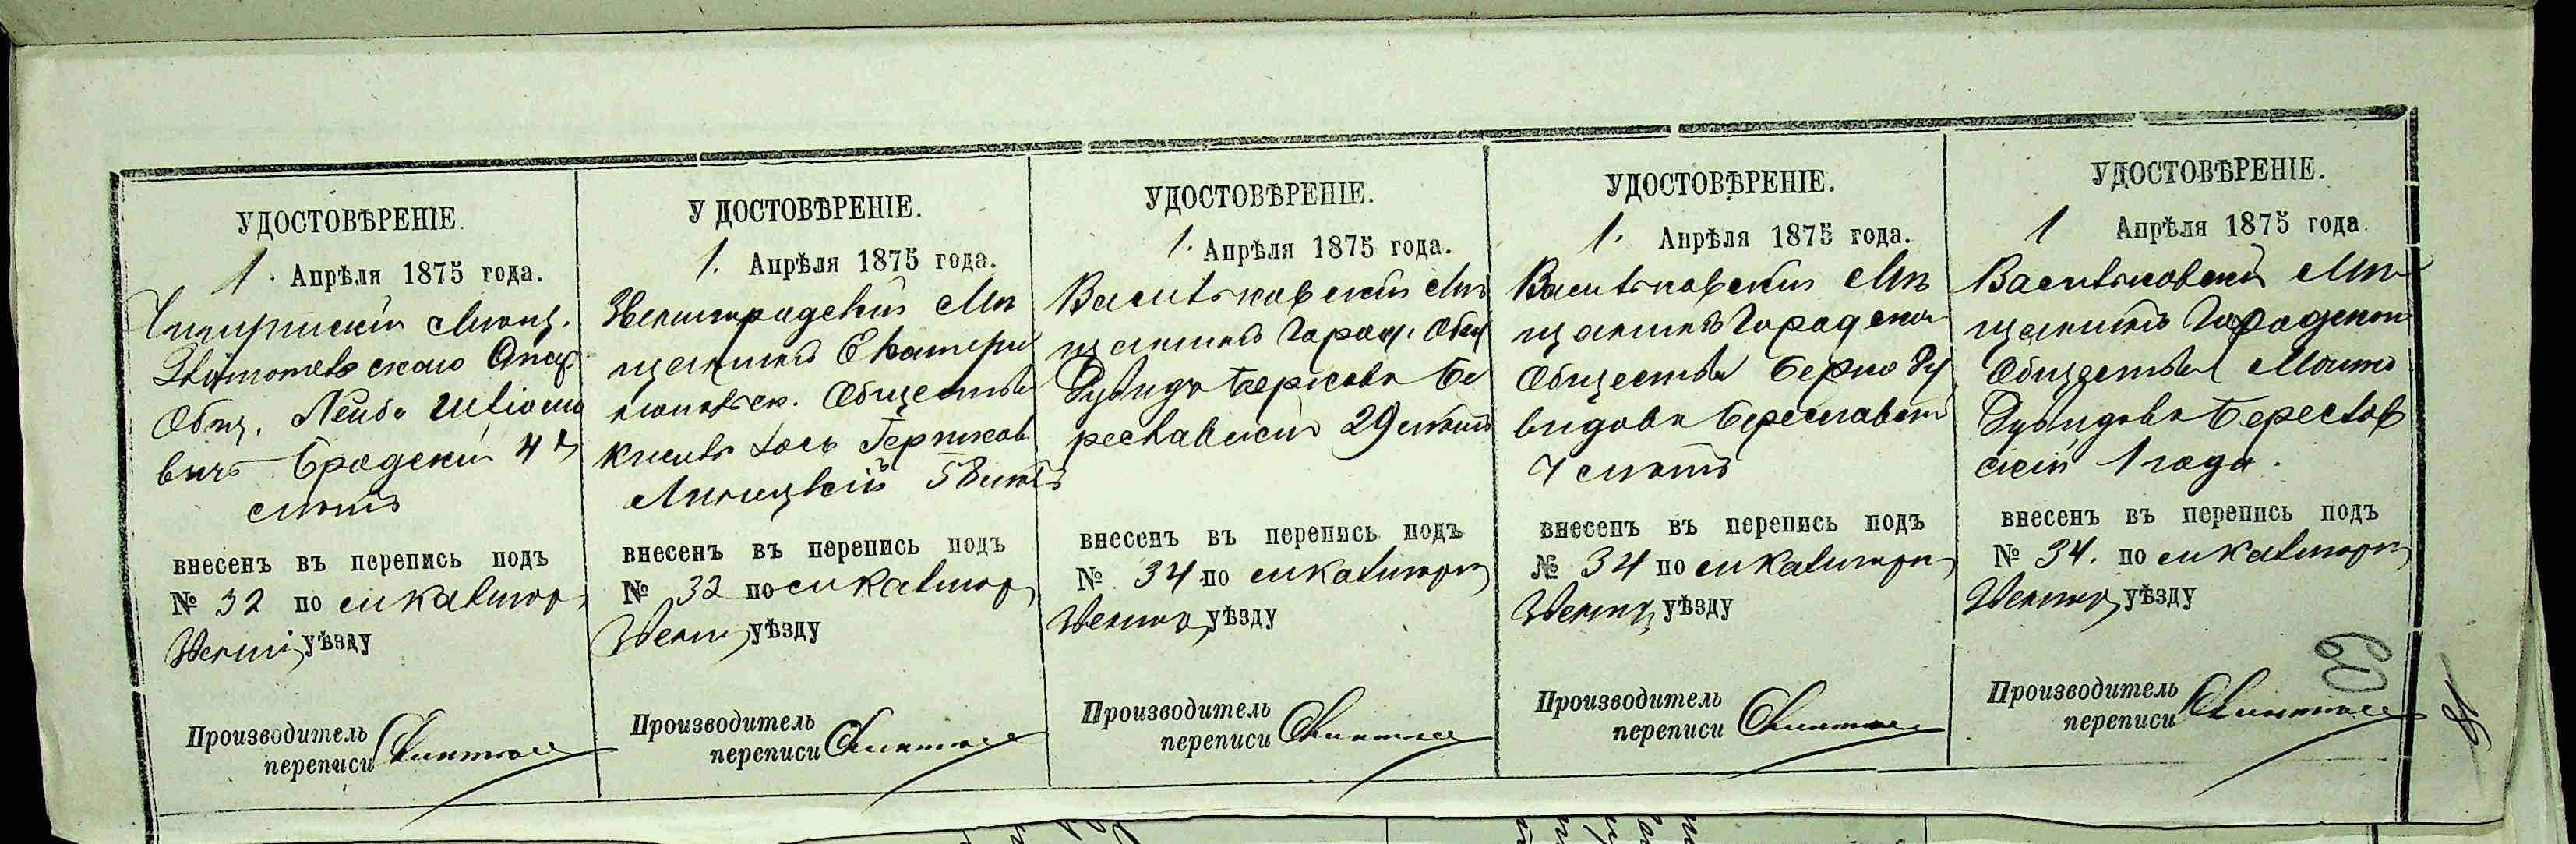 УДОСТОВѢРЕНІЕ.
1. Апрѣля 1875 года.
Чигиринскій Мѣщ.
Общ. Лейба
вичъ Бродскій 4
лѣтъ
внесенъ въ перепись подъ
№ 32 по м Катинор
уѣзду
Производитель
переписи
УДОСТОВѢРЕНІЕ.
1. Апрѣля 1875 года.
Звенигородскій Мѣ
щанинъ Екатери
нопольск. Общества
Іось Гершков
Липецкій 58 лѣтъ
внесенъ въ перепись подъ
№ 32 по м Катинор
Звениг уѣзду
Производитель
переписи
УДОСТОВѢРЕНІЕ.
1. Апрѣля 1875 года.
Васильковскій Мѣ
щанинъ Город. Общ
Дувидъ Берковъ Бе
реславскій 29 лѣтъ
внесенъ въ перепись подъ
№ 34 по м Катинори
Звениг уѣзду
Производитель
переписи
УДОСТОВѢРЕНІЕ.
1. Апрѣля 1875 года.
Васильковскій Мѣ
щанинъ Городског
Общества Берко Ду
видовъ Береславскій
7 лѣтъ
внесенъ въ перепись подъ
№ 34 по м Катинори
Звениг уѣзду
Производитель
переписи
УДОСТОВѢРЕНІЕ.
1 Апрѣля 1875 года.
Васильковскій Мѣ
щанинъ Городског
Общества Мошко
Дувидовъ Берестов
скій 1 года.
внесенъ въ перепись подъ
№ 34. по м Катинори
Звениг уѣзду
Производитель
переписи
60